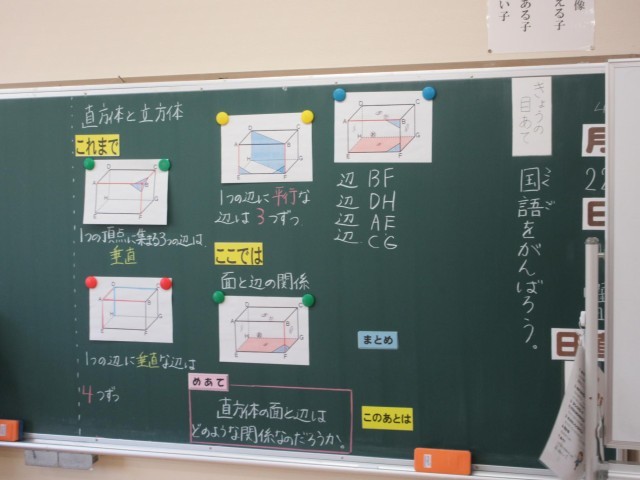 直方体と立方体
これまで
1つの頂点に集まる3つの辺は
垂直
1つの辺に垂直な辺は
4つずつ
1つの辺に平行な
辺は3つずつ
ここでは
面と辺の関係
めあて
直方体の面と辺は
どのような関係なのだろうか。
辺 BF
辺 DH
辺 AE
辺 CG
まとめ
このあとは
きょうの
目あて
国語をがんばろう。
こくご
月
22
日
日直
像
える子
ある子
い子